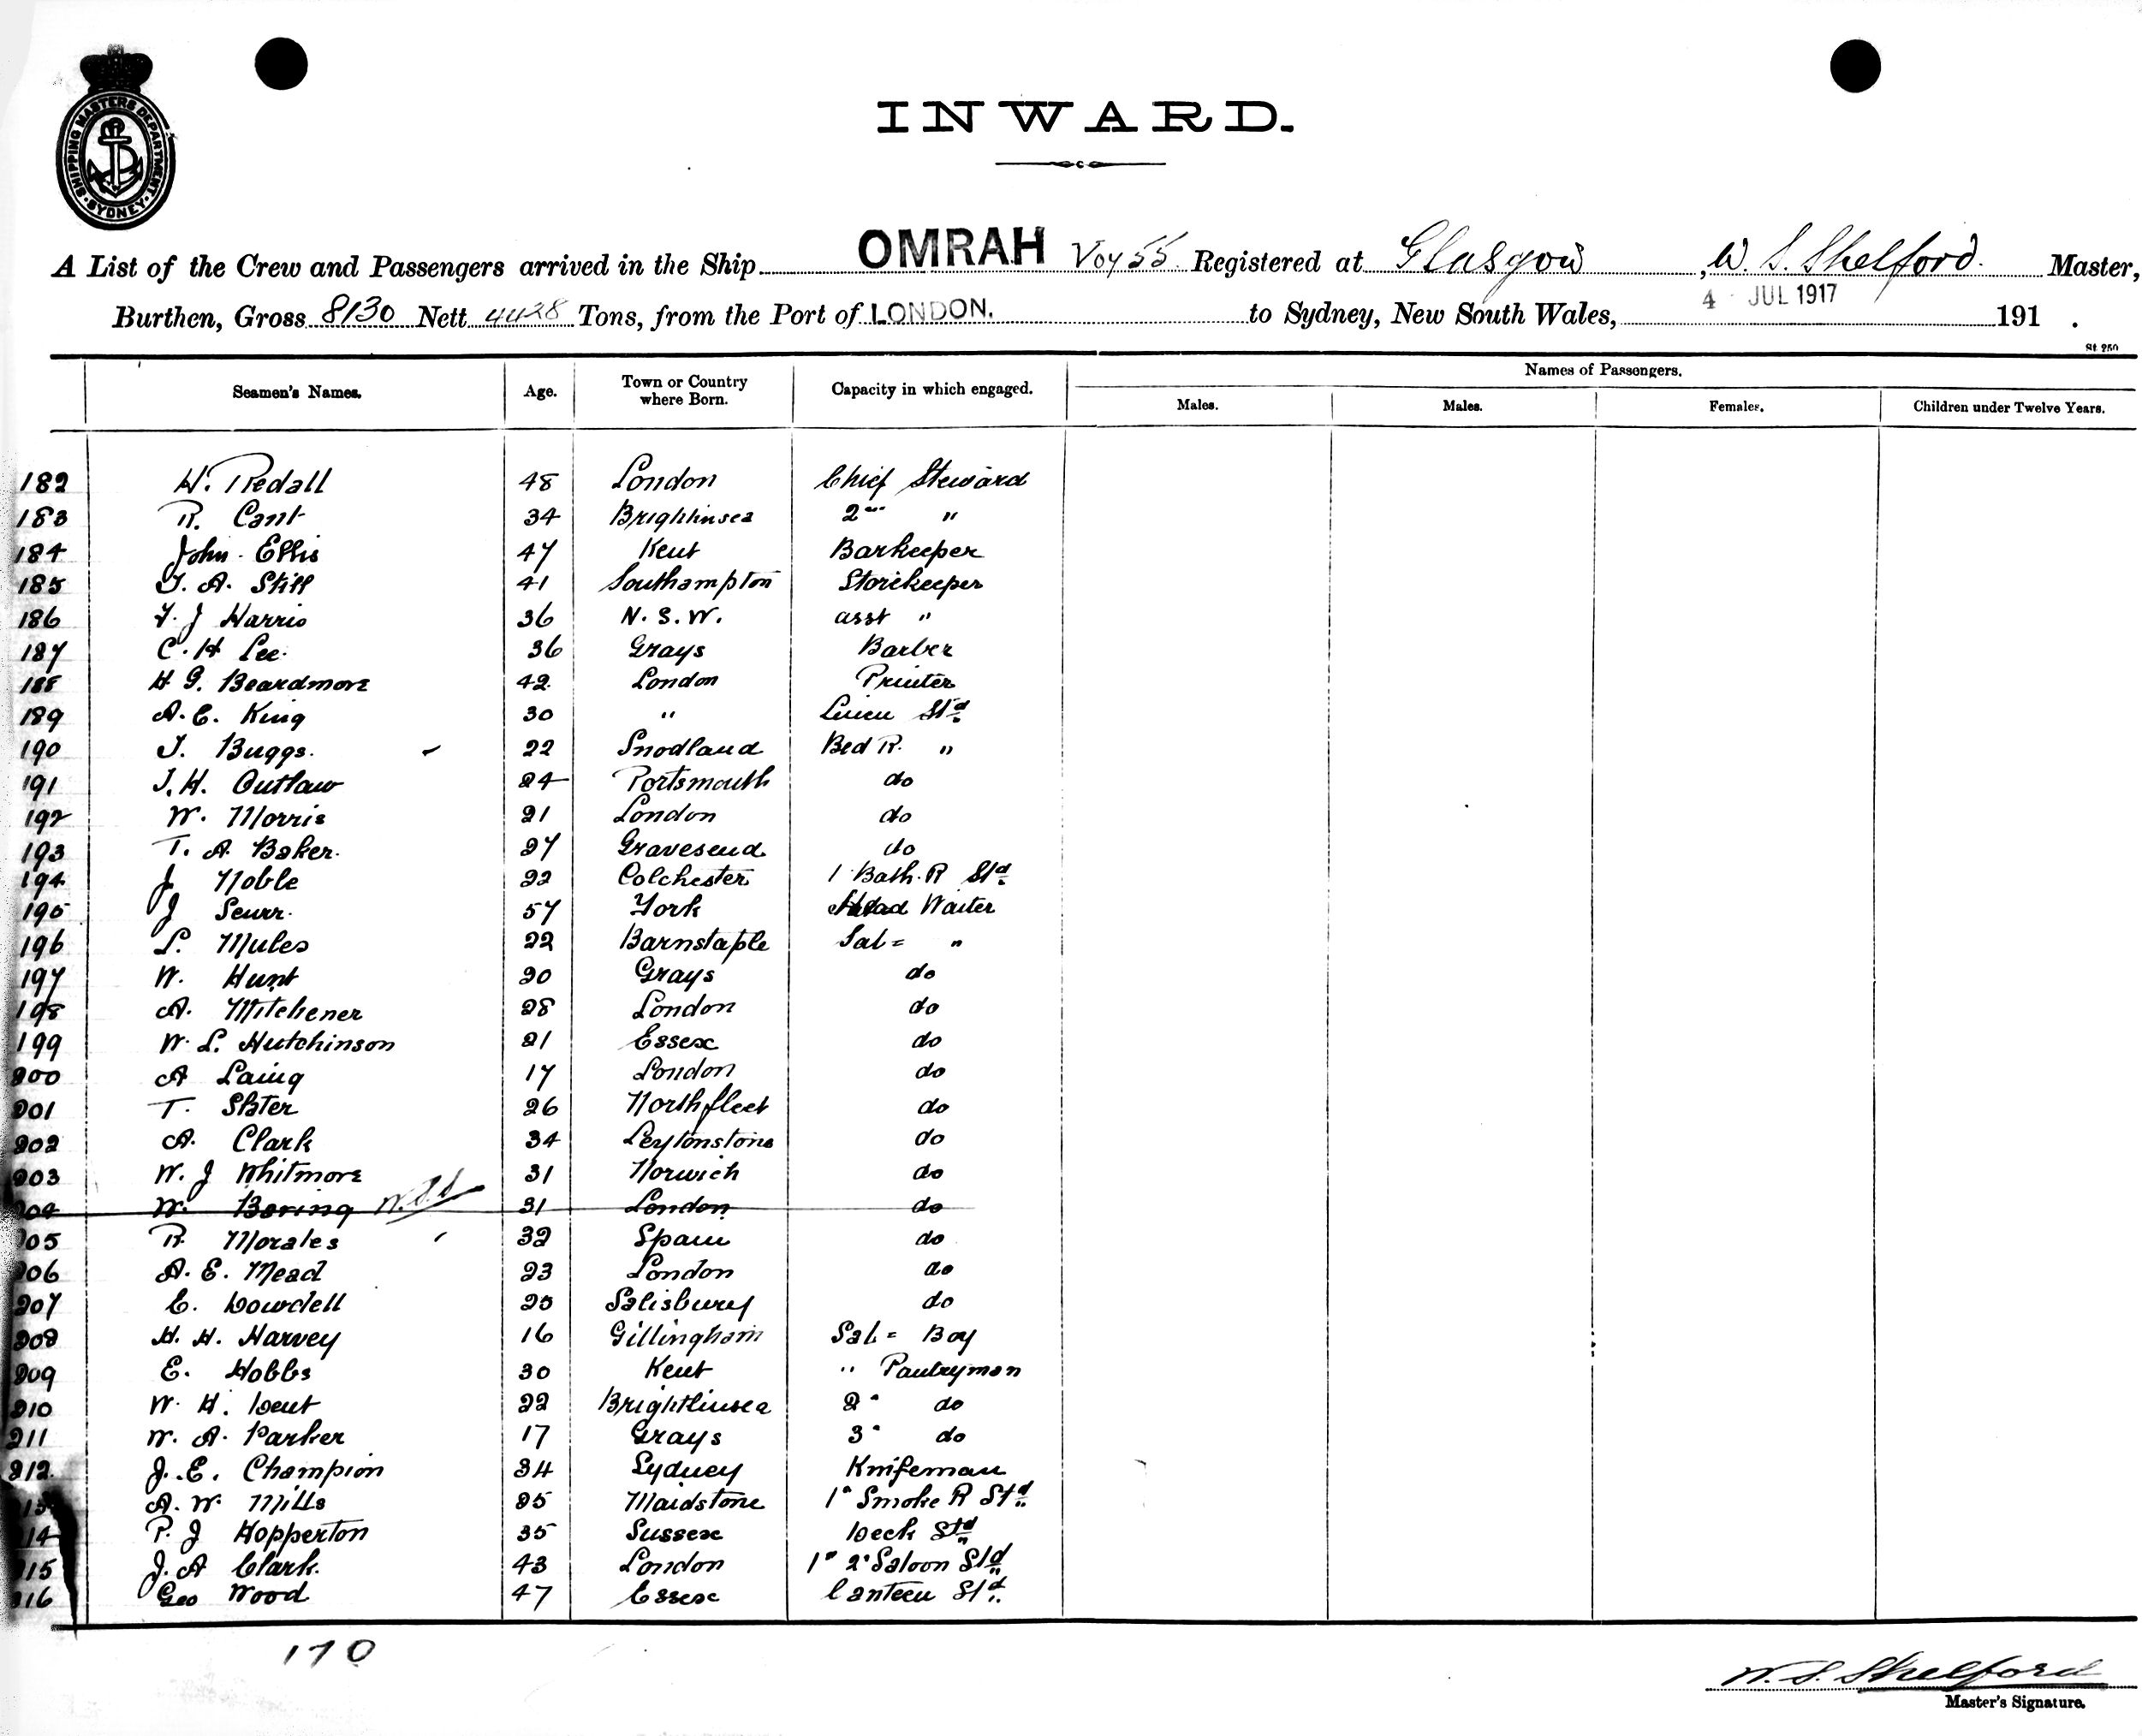 SHIPPING MASTERS DEPARTMENT
SYDNEY
INWARD.
A List of the Crew and Passengers arrived in the Ship OMRAH Voy 55 Registered at Glasgow, W. S. Shelford. Master,
Burthen, Gross 8130 Nett 4428 Tons, from the Port of LONDON. to Sydney, New South Wales, 4 JUL 1917 191 .
St 250
Seamen's Names. Age. Town or Country where Born. Capacity in which engaged. Names of Passengers.
Males. Males. Females. Children under Twelve Years.
182 H. Tredall 48 London Chief Steward
183 R. Cant 34 Brightlinsea 2nd "
184 John Ellis 47 Kent Barkeeper
185 T. A. Skill 41 Southampton Storekeeper
186 F. J Harris 36 N. S. W. asst "
187 C. H Lee. 36 Grays Barber
188 H G. Beardmore 42 London Printer
189 A. C. King 30 " Linen Std
190 T. Buggs. 22 Snodland Bed R. "
191 J. H. Outlaw 24 Portsmouth do
192 W. Morris 21 London do
193 T. A. Baker. 27 Gravesend do
194 J Noble 22 Colchester 1 Bath. R Std
195 J Scurr. 57 York Head Waiter
196 L. Mules 22 Barnstaple Sal= "
197 W. Hunt 20 Grays do
198 A. Mitchener 28 London do
199 W. L. Hutchinson 21 Essex do
200 A Laing 17 London do
201 T. Slater 26 Northfleet do
202 A. Clark 34 Leytonstone do
203 W. J Whitmore 31 Norwich do
204 W. Boring W.S.S 31 London do
205 R. Morales 32 Spain do
206 A. E. Mead 23 London do
207 C. Dowdell 25 Salisbury do
208 H. H. Harvey 16 Gillingham Sal= Boy
209 E. Hobbs 30 Kent " Pantryman
210 W. H. Dent 22 Brightlinsea 2" do
211 W. A. Parker 17 Grays 3" do
212 J. E. Champion 34 Sydney Knifeman
213 A. W. Mills 25 Maidstone 1" Smoke R Std
214 P. J Hopperton 35 Sussex Deck Std
215 J. A Clark. 43 London 1" 2" Saloon Std
216 Geo Wood 47 Essex Canteen Std.
170
W. S. Shelford
Master's Signature.